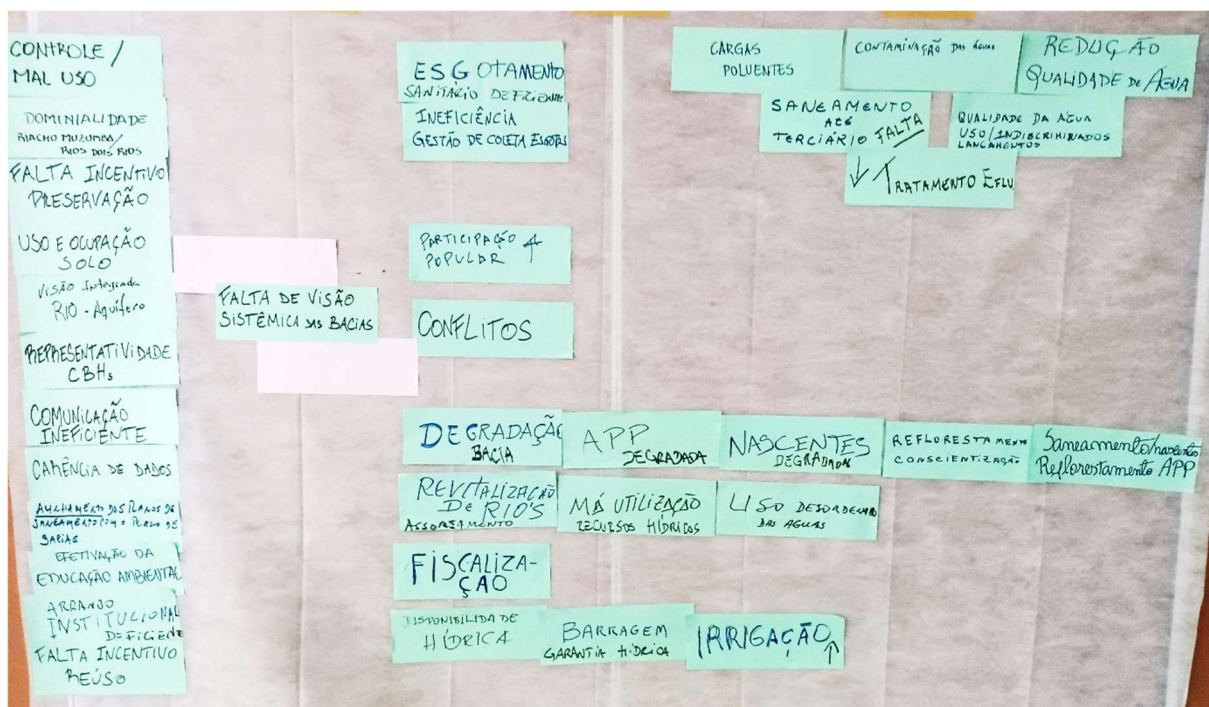 CONTROLE /
MAL USO
DOMINIALIDADE
RIACHO MUZUMBA/
RIOS DOIS RIOS
FALTA INCENTIVO
PRESERVAÇÃO
USO E OCUPAÇÃO
SOLO
VISÃO Integrada
RIO - Aquífero
REPRESENTATIVIDADE
CBHs
COMUNICAÇÃO
INEFICIENTE
CARÊNCIA DE DADOS
DOS PLANOS DE
SANEAMENTO COM O PLANO DE
BACIAS
EFETIVAÇÃO DA
EDUCAÇÃO AMBIENTAL
ARRANJO
INSTITUCIONAL
DEFICIENTE
FALTA INCENTIVO
REÚSO
FALTA DE VISÃO
SISTÊMICA DAS BACIAS
ESGOTAMENTO
SANITÁRIO DEFICIENTE
INEFICIÊNCIA
GESTÃO DE COLETA ESGOTOS
PARTICIPAÇÃO ↑
POPULAR
CONFLITOS
CARGAS
POLUENTES
CONTAMINAÇÃO DAS ÁGUAS
REDUÇÃO
QUALIDADE DE ÁGUA
SANEAMENTO
ATÉ
TERCIÁRIO FALTA
QUALIDADE DA ÁGUA
USO/INDISCRIMINADOS
LANÇAMENTOS
↓ TRATAMENTO EFLU
DEGRADAÇÃO
BACIA
APP
DEGRADADA
NASCENTES
DEGRADADAS
REFLORESTAMENTO
CONSCIENTIZAÇÃO
Saneamento/nascentes
Reflorestamento APP
REVITALIZAÇÃO
DE RIO'S
ASSOREAMENTO
MÁ UTILIZAÇÃO
RECURSOS HÍDRICOS
USO DESORDENADO
DAS AGUAS
FISCALIZA-
ÇÃO
DISPONIBILIDADE
HÍDRICA
BARRAGEM
GARANTIA HÍDRICA
IRRIGAÇÃO ↑